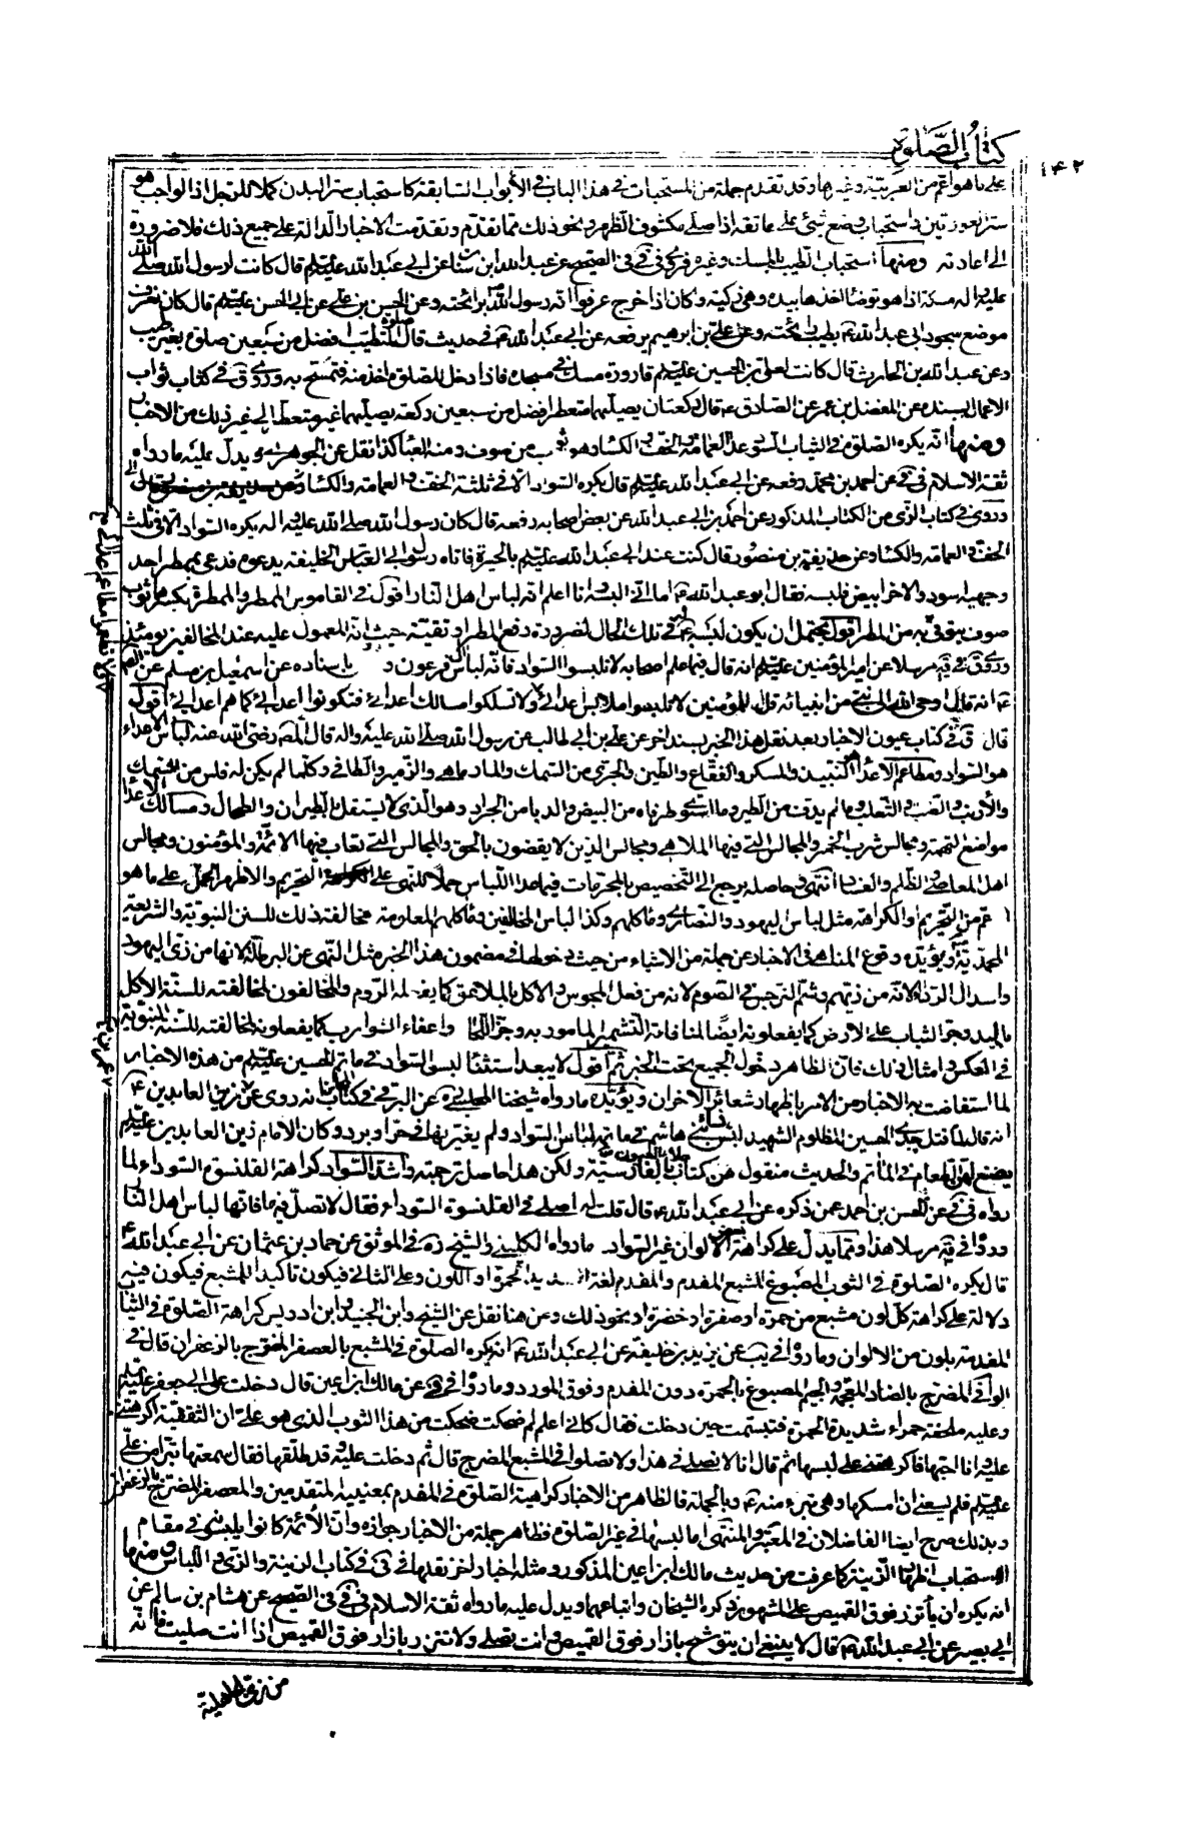 كتاب الصلوة
١٤٢
على ما هو اعم من العربية وغيرها وقد تقدم جملة من المستحبات في هذا الباب في الأبواب السابقة كاستحباب ستر البدن كملا للرجل اذ الواجب هو
ستر العورتين واستحباب وضع شيئ على عاتقه اذا صلى مكشوف الظهر ونحو ذلك مما تقدم وتقدمت الاخبار الدالة على جميع ذلك فلا ضرورة
الى اعادته ومنها استحباب الطيب بالمسك وغيره فروى في في الصحيح عن عبد الله ابن سنان عن ابي عبد الله عليه السلم قال كانت لرسول الله صلى الله
عليه واله مسكة اذا هو توضأ اخذها بيده وهي رطبة وكان اذا خرج عرفوا انه رسول الله برائحته وعن الحسن بن علي عن ابي الحسن عليه السلم قال كان يعرف
موضع سجود ابي عبد الله ع بطيب رائحته وعن علي بن ابرهيم يرفعه عن ابي عبد الله ع في حديث قال صلوة متطيب افضل من سبعين صلوة بغير طيب
وعن عبد الله بن الحارث قال كانت لعلي بن الحسين عليه السلم قارورة مسك في مسجده فاذا دخل للصلوة اخذ منه فتمسح به وروى ق في كتاب ثواب
الاعمال بسنده عن المفضل بن عمر عن الصادق ع قال ركعتان يصليهما متعطر افضل من سبعين ركعة يصليهما غير متعطر الى غير ذلك من الاخبار
ومنها انه يكره الصلوة في الثياب السود عدا العمامة والخف والكساء وهو ثوب من صوف ومنه العبا كذا نقل عن الجوهري ويدل عليه ما رواه
ثقة الاسلام في في عن احمد بن محمد رفعه عن ابي عبد الله عليه السلم قال يكره السواد الا في ثلثة الخف والعمامة والكساء
وروى في كتاب الزي من الكتاب المذكور عن احمد بن ابي عبد الله عن بعض اصحابه رفعه قال كان رسول الله صلى الله عليه واله يكره السواد الا في ثلث
الخف والعمامة والكساء وعن حذيفة بن منصور قال كنت عند ابي عبد الله عليه السلم بالحيرة فاتاه رسول ابي العباس الخليفة يدعوه فدعى بممطر احد
وجهيه اسود والاخر ابيض فلبسه فقال ابو عبد الله ع اما اني البسه وانا اعلم انه لباس اهل النار اقول في القاموس الممطر والممطرة بكسرهما ثوب
صوف يتوقى به من المطر اقول يحتمل ان يكون لبسه ع في تلك الحال لضرورة دفع المطر او تقية حيث انه المعمول عليه عند المخالفين يومئذ
وروى ق في يه مرسلا عن امير المؤمنين عليه السلم انه قال فيما علم اصحابه لا تلبسوا السواد فانه لباس فرعون و باسناده عن اسمعيل بن مسلم عن الصادق
ع انه قال اوحى الله الى نبي من انبيائه قل للمؤمنين لا تلبسوا ملابس اعدائي ولا تسلكوا مسالك اعدائي فتكونوا اعدائي كما هم اعدائي اقول
قال ق في كتاب عيون الاخبار بعد نقل هذا الخبر بسند اخر عن علي بن ابي طالب عن رسول الله صلى الله عليه واله قال المصـ رضي الله عنه لباس الاعداء
هو السواد ومطاعم الاعداء النبيذ والمسكر والفقاع والطين والجري من السمك والمارماهي والزمير والطافي وكلما لم يكن له فلس من السمك
والأرنب والضب والثعلب وما لم يدف من الطير وما استوى طرفاه من البيض والدبا من الجراد وهو الذي لا يستقل بالطيران والطحال ومسالك الاعداء
مواضع التهمة ومجالس شرب الخمر والمجالس التي فيها الملاهي ومجالس الذين لا يقضون بالحق والمجالس التي تعاب فيها الائمة والمؤمنون ومجالس
اهل المعاصي والظلم والفساد انتهى وحاصله يرجع الى التخصيص بالمحرمات فيما عدا اللباس حملا للنهي على التحريم والاظهر الحمل على ما هو
اعم من التحريم والكراهة مثل لباس اليهود والنصارى ومأكلهم وكذا لباس المخالفين ومأكلهم المعلومة مخالفة ذلك للسنن النبوية والشريعة
المحمدية ويؤيده وقوع المناهي في الاخبار عن جملة من الاشياء من حيث دخولها في مضمون هذا الخبر مثل النهي عن البرطلة لانها من زي اليهود
واسدال الرداء لانه من زيهم وشم النرجس في الصوم لانه من فعل المجوس والاكل بالملاعق كما يفعله الروم والمخالفون لمخالفته للسنة الاكل
باليد وجر الثياب على الارض كما يفعلونه ايضا لمنافاته التشمير المأمور به وجز اللحا واعفاء الشوارب كما يفعلونه لمخالفته للسنة النبوية
في العكس وامثال ذلك فان الظاهر دخول الجميع تحت الخبر ثم اقول لا يبعد استثناء لبس السواد في ماتم الحسين عليه السلم من هذه الاخبار
لما استفاضت به الاخبار من الامر باظهار شعائر الاحزان ويؤيده ما رواه شيخنا المجلسي عن البرقي في كتاب المحاسن انه روى عن زين العابدين ع
انه قال لما قتل جدي الحسين المظلوم الشهيد لبس نساء بني هاشم في ماتمه لباس السواد ولم يغيرنها في حر او برد وكان الامام زين العابدين عليه السلم
يصنع لهن الطعام في المأتم والحديث منقول من كتاب جلاء العيون بالفارسية ولكن هذا حاصل ترجمته واشد السواد كراهة القلنسوة السوداء لما
رواه في في عن محسن بن احمد عمن ذكره عن ابي عبد الله ع قال قلت له اصلي في القلنسوة السوداء فقال لا تصل فيها فانها لباس اهل النار
ورواه في يه مرسلا هذا ومما يدل على كراهة بعض الالوان غير السواد ما رواه الكليني والشيخ ره في الموثق عن حماد بن عثمان عن ابي عبد الله ع
قال يكره الصلوة في الثوب المصبوغ المشبع المفدم والمفدم لغة الشديد الحمرة او اللون وعلى الثاني فيكون تأكيدا للمشبع فيكون فيه
دلالة على كراهة كل لون مشبع من حمرة او صفرة او خضرة او نحو ذلك ومن هنا نقل عن الشيخ وابن الجنيد وابن ادريس كراهة الصلوة في الثياب
المفدمة بلون من الالوان وما رواه في يب عن يزيد بن خليفة عن ابي عبد الله ع انه يكره الصلوة في المشبع بالعصفر المضرج بالزعفران قال في
الوافي المضرج بالضاد المعجمة والجيم المصبوغ بالحمرة دون المفدم وفوق المورد وما رواه في في عن مالك ابن اعين قال دخلت على ابي جعفر عليه السلم
وعليه ملحفة حمراء شديدة الحمرة فتبسمت حين دخلت فقال كاني اعلم لم ضحكت ضحكت من هذا الثوب الذي هو علي ان الثقفية اكرهتني
عليه وانا احبها فاكرهتني على لبسها ثم قال انا لا نصلي في هذا ولا تصلوا في المشبع المضرج قال ثم دخلت عليه وقد طلقها فقال سمعتها تبرأ من علي
عليه السلم فلم يسعني ان امسكها وهي تبرء منه ع وبالجملة فالظاهر من الاخبار كراهية الصلوة في المفدم بمعنييه المتقدمين والمعصفر المضرج بالزعفران
وبذلك صرح ايضا الفاضلان في المعتبر والمنتهى اما لبسها في غير الصلوة فظاهر جملة من الاخبار جوازه وان الأئمة كانوا يلبسونه في مقام
استحباب اظهار الزينة كما عرفت من حديث مالك ابن اعين المذكور ومثله اخبار اخر نقلها في في في كتاب الزينة والزي واللباس ومنها
انه يكره ان يأتزر فوق القميص على المشهور ذكره الشيخان واتباعهما ويدل عليه ما رواه ثقة الاسلام في في في الصحيح عن هشام بن سالم عن
ابي بصير عن ابي عبد الله ع قال لا ينبغي ان يتوشح بازار فوق القميص وانت تصلي ولا تتزر بازار فوق القميص اذا انت صليت فانه
من زي الجاهلية